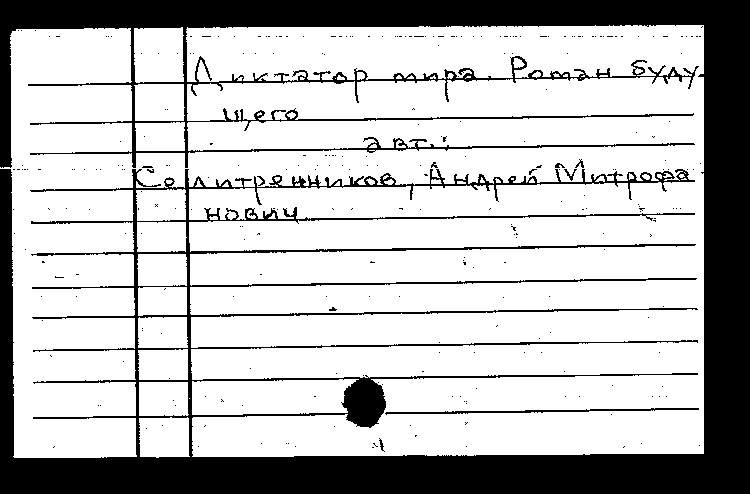 Диктатор мира. Роман буду-
щего
авт.:
Селитренников, Андрей Митрофа-
нович